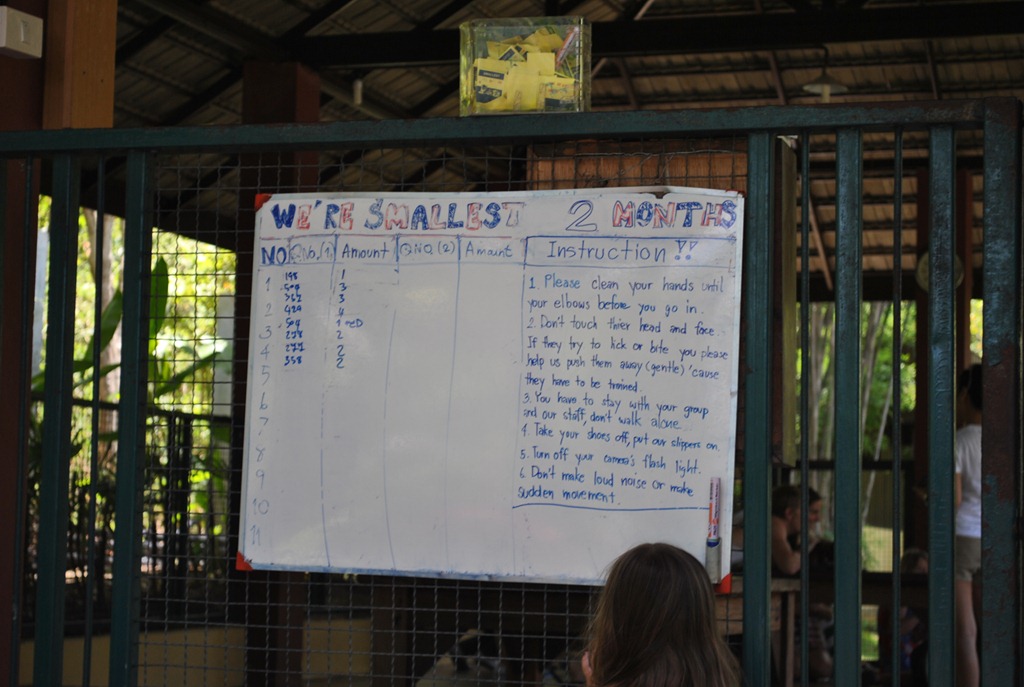 WE'RE SMALLEST 2 MONTHS
NO QNo.(1) Amount QNO(2) Amount Instruction !!
1
2
3
4
5
6
7
8
9
10
11
198 1
509 3
762 3
424 4
509 1
278 2
277 2
358 2
1. Please clean your hands until
your elbows before you go in.
2. Don't touch thier head and face.
If they try to lick or bite you please
help us push them away (gentle) 'cause
they have to be trained.
3. You have to stay with your group
and our staff, don't walk alone.
4. Take your shoes off, put our slippers on.
5. Turn off your camera's flash light.
6. Don't make loud noise or make
sudden movement.